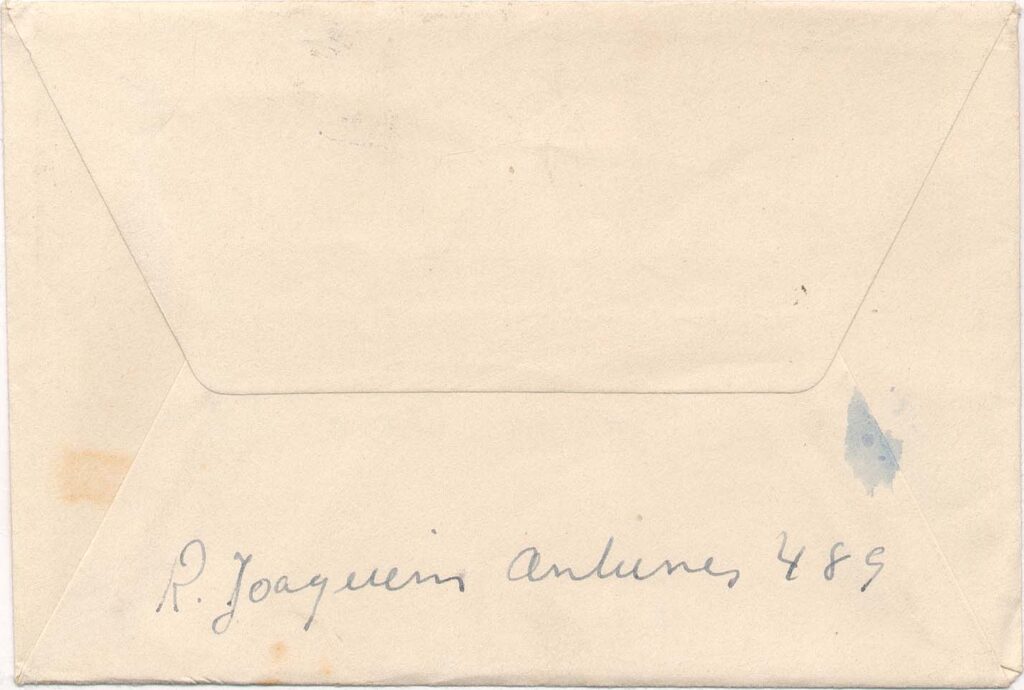 R. Joaquim Antunes 489